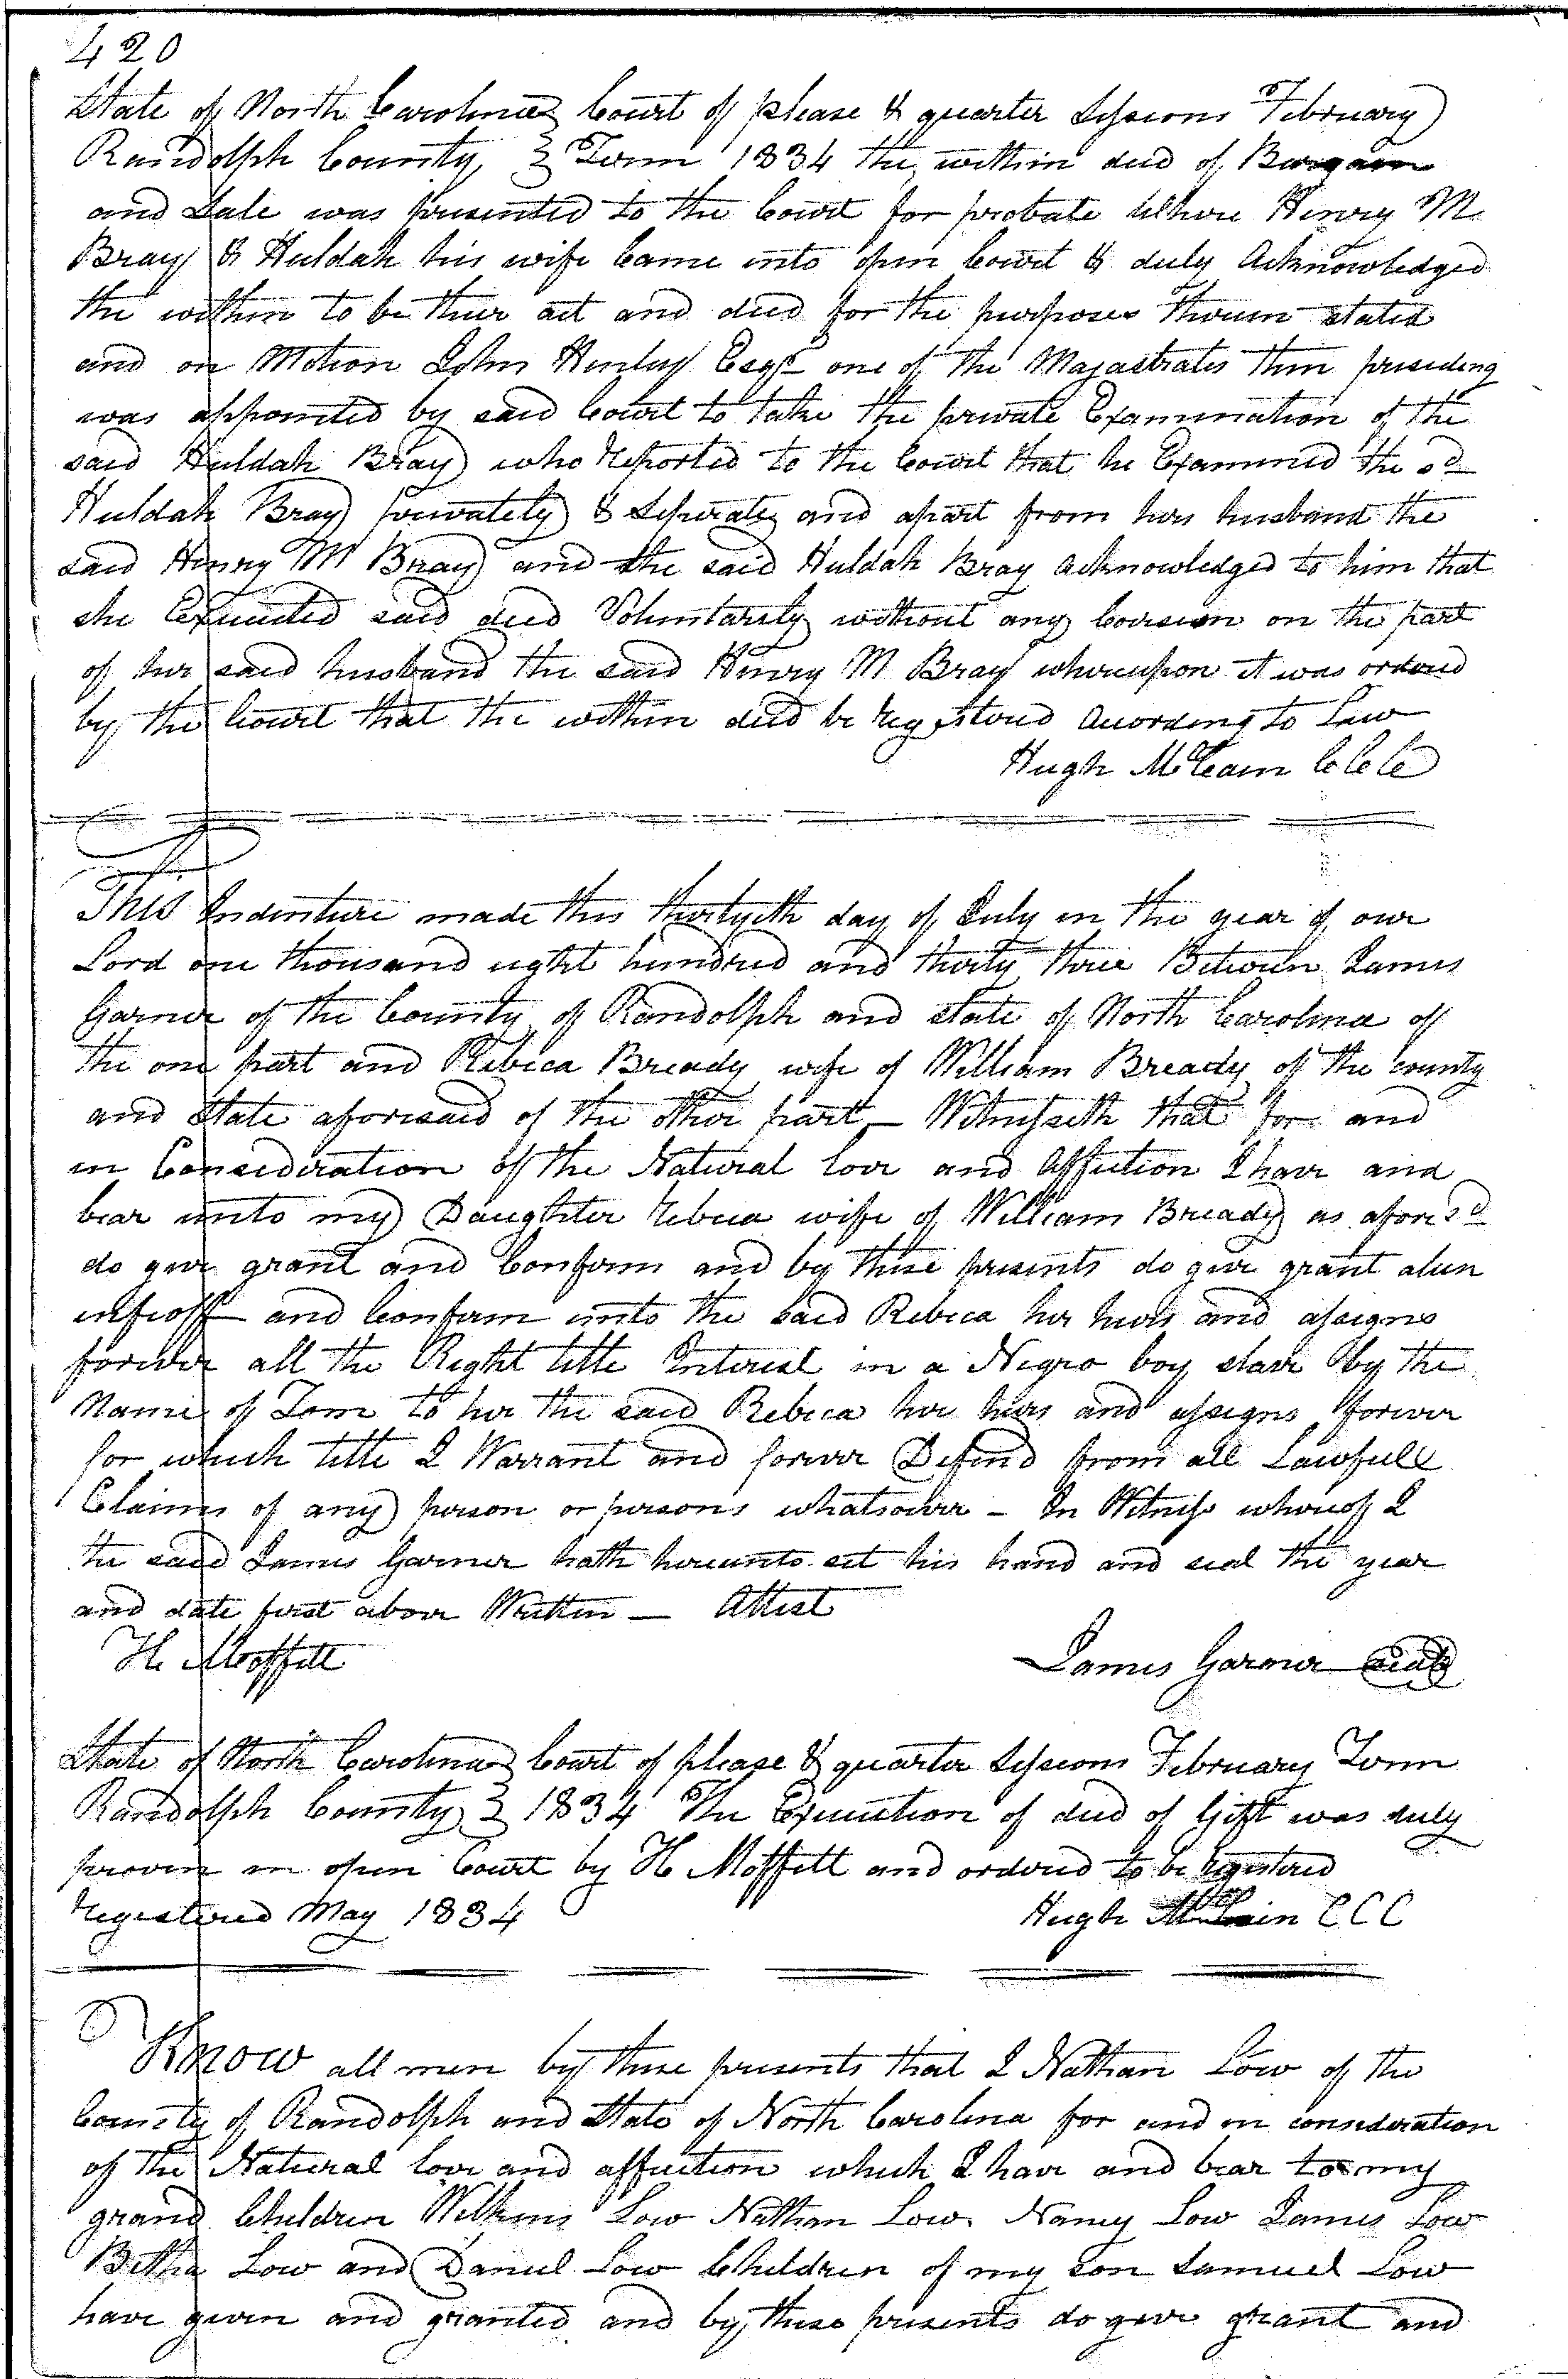 420
State of North Carolina Court of please & quarter Sessions February
Randolph County } Term 1834 the within deed of Bargain
and Sale was presented to the Court for probate Where Henry M.
Bray & Huldah his wife Came into open Court & duly Acknowledged
the within to be their act and deed for the purposes therein stated
and on Motion John Henley Esqr one of the Majastrates then presideng
was appointed by said Court to take the private Examination of the
said Huldah Bray who Reported to the Court that he Examined the sd
Huldah Bray privately & Seperate and apart from her husband the
said Henry M Bray and the said Huldah Bray acknowledged to him that
she Executed said deed Voluntarily without any Coersion on the part
of her said husband the said Henry M Bray whereupon it was ordered
by the Court that the within deed be registered according to Law
Hugh McCain C C C
This Indenture made this thirtyeth day of July in the year of our
Lord one thousand eight hundred and thirty three Between James
Garner of the County of Randolph and state of North Carolina of
the one part and Rebeca Bready wife of William Bready of the county
and State aforesaid of the other part – Witnesseth that for and
in Consideration of the Natural love and Affection I have and
bear unto my Daughter rebeca wife of William Bready as afores d
do give grant and Conform and by these presents do give grant alien
enfeoff and Conferm unto the said Rebeca her heirs and assigns
forever all the Right title Interest in a Negro boy slave by the
Name of Tom to her the said Rebeca her heirs and assigns forever
for which title I Warrant and forever Defend from all Lawfull
Claims of any person or persons whatsoever – In Witness whereof I
the said James Garner hath hereunto set his hand and seal the year
and date first above Written – Attest
H. Moffett
James Garner seal
State of North Carolina Court of please & quarter Sessions February Term
Randolph County } 1834 The Execution of deed of Gift was duly
proven in open Court by H Moffett and ordered to be registered
registered May 1834
Hugh McCain C C C
Know all men by these presents that I Nathan Low of the
County of Randolph and State of North Carolina for and in consideration
of the Natural love and affection which I have and bear to my
grand Children Low Nathan Low Nancy Low James Low
Low and Daniel Low Children of my son Samuel Low
have given and granted and by these presents do give grant and